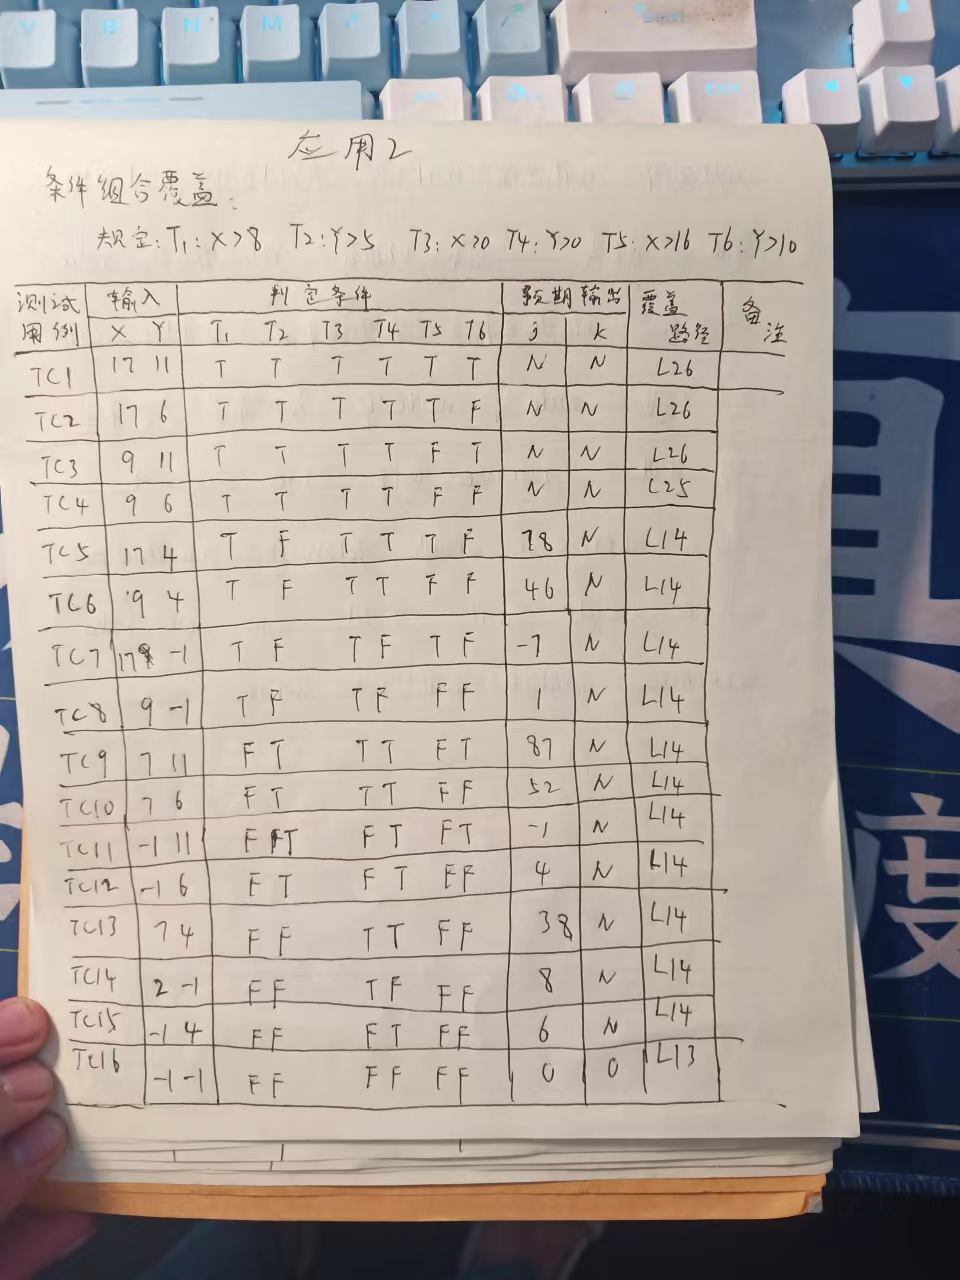 应用2
条件组合覆盖:
规定: T1: X>8 T2: Y>5 T3: X>0 T4: Y>0 T5: X>16 T6: Y>10
测试用例 输入 判定条件 预期输出 覆盖路径 备注
X Y T1 T2 T3 T4 T5 T6 j k
TC1 17 11 T T T T T T N N L26
TC2 17 6 T T T T T F N N L26
TC3 9 11 T T T T F T N N L26
TC4 9 6 T T T T F F N N L25
TC5 17 4 T F T T T F 78 N L14
TC6 9 4 T F T T F F 46 N L14
TC7 17 -1 T F T F T F -7 N L14
TC8 9 -1 T F T F F F 1 N L14
TC9 7 11 F T T T F T 87 N L14
TC10 7 6 F T T T F F 52 N L14
TC11 -1 11 F T F T F T -1 N L14
TC12 -1 6 F T F T F F 4 N L14
TC13 7 4 F F T T F F 38 N L14
TC14 2 -1 F F T F F F 8 N L14
TC15 -1 4 F F F T F F 6 N L14
TC16 -1 -1 F F F F F F 0 0 L13
V B N M